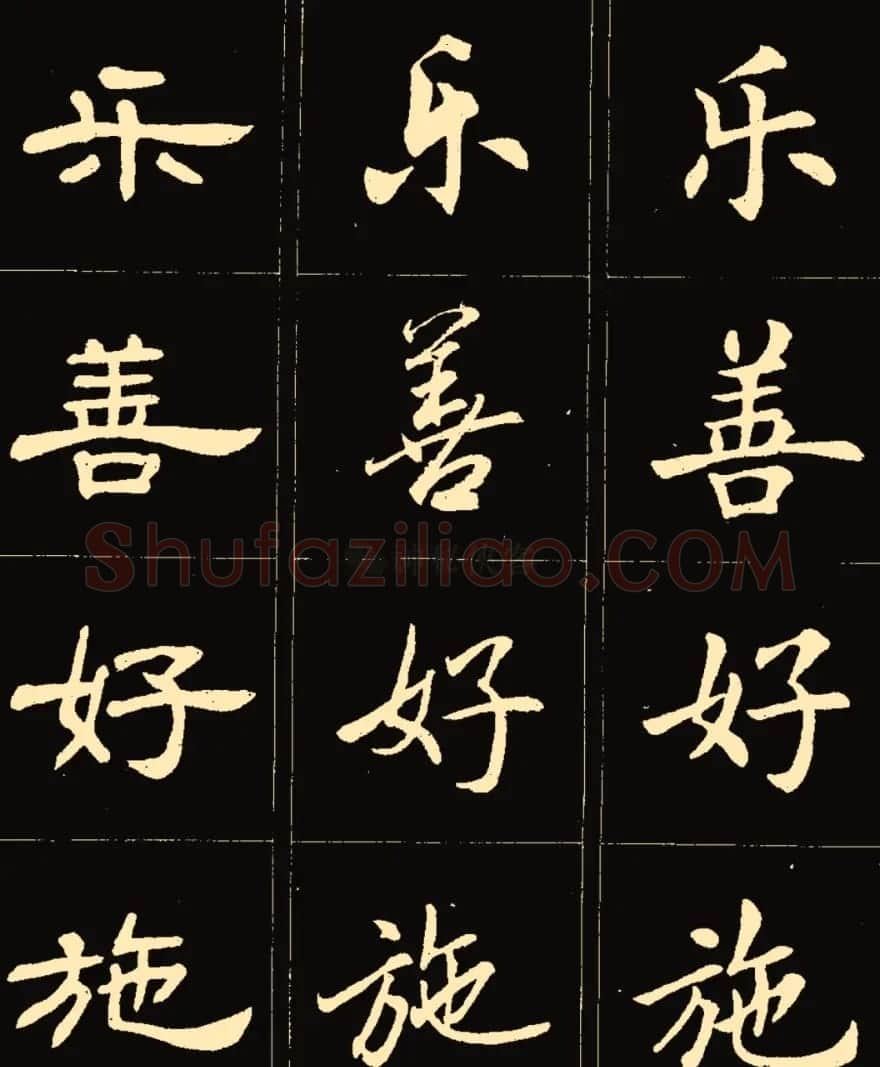 乐 乐 乐
善 善 善
Shufaziliao.COM
好 好 好
施 施 施